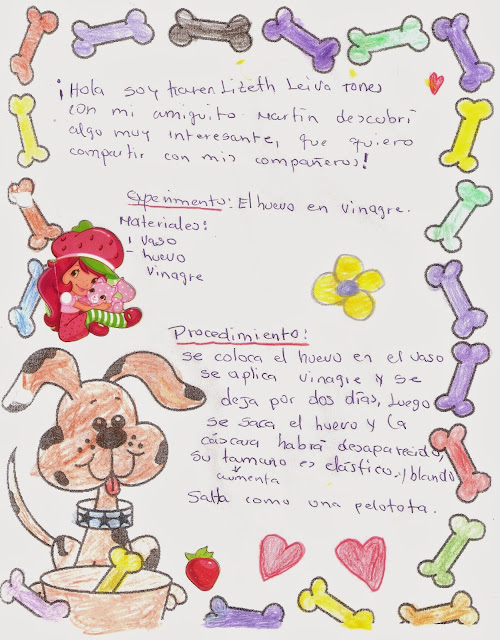 ¡Hola soy Karen Lizeth Leiva Torres
con mi amiguito Martin descubrí
algo muy interesante, que quiero
compartir con mis compañeros!
Experimento: El huevo en vinagre.
Materiales:
1 vaso
- huevo
vinagre
Procedimiento:
se coloca el huevo en el vaso
se aplica vinagre y se
deja por dos días, luego
se saca el huevo y la
cáscara habrá desaparecido,
su tamaño es elástico y blando
aumenta
Salta como una pelotota.